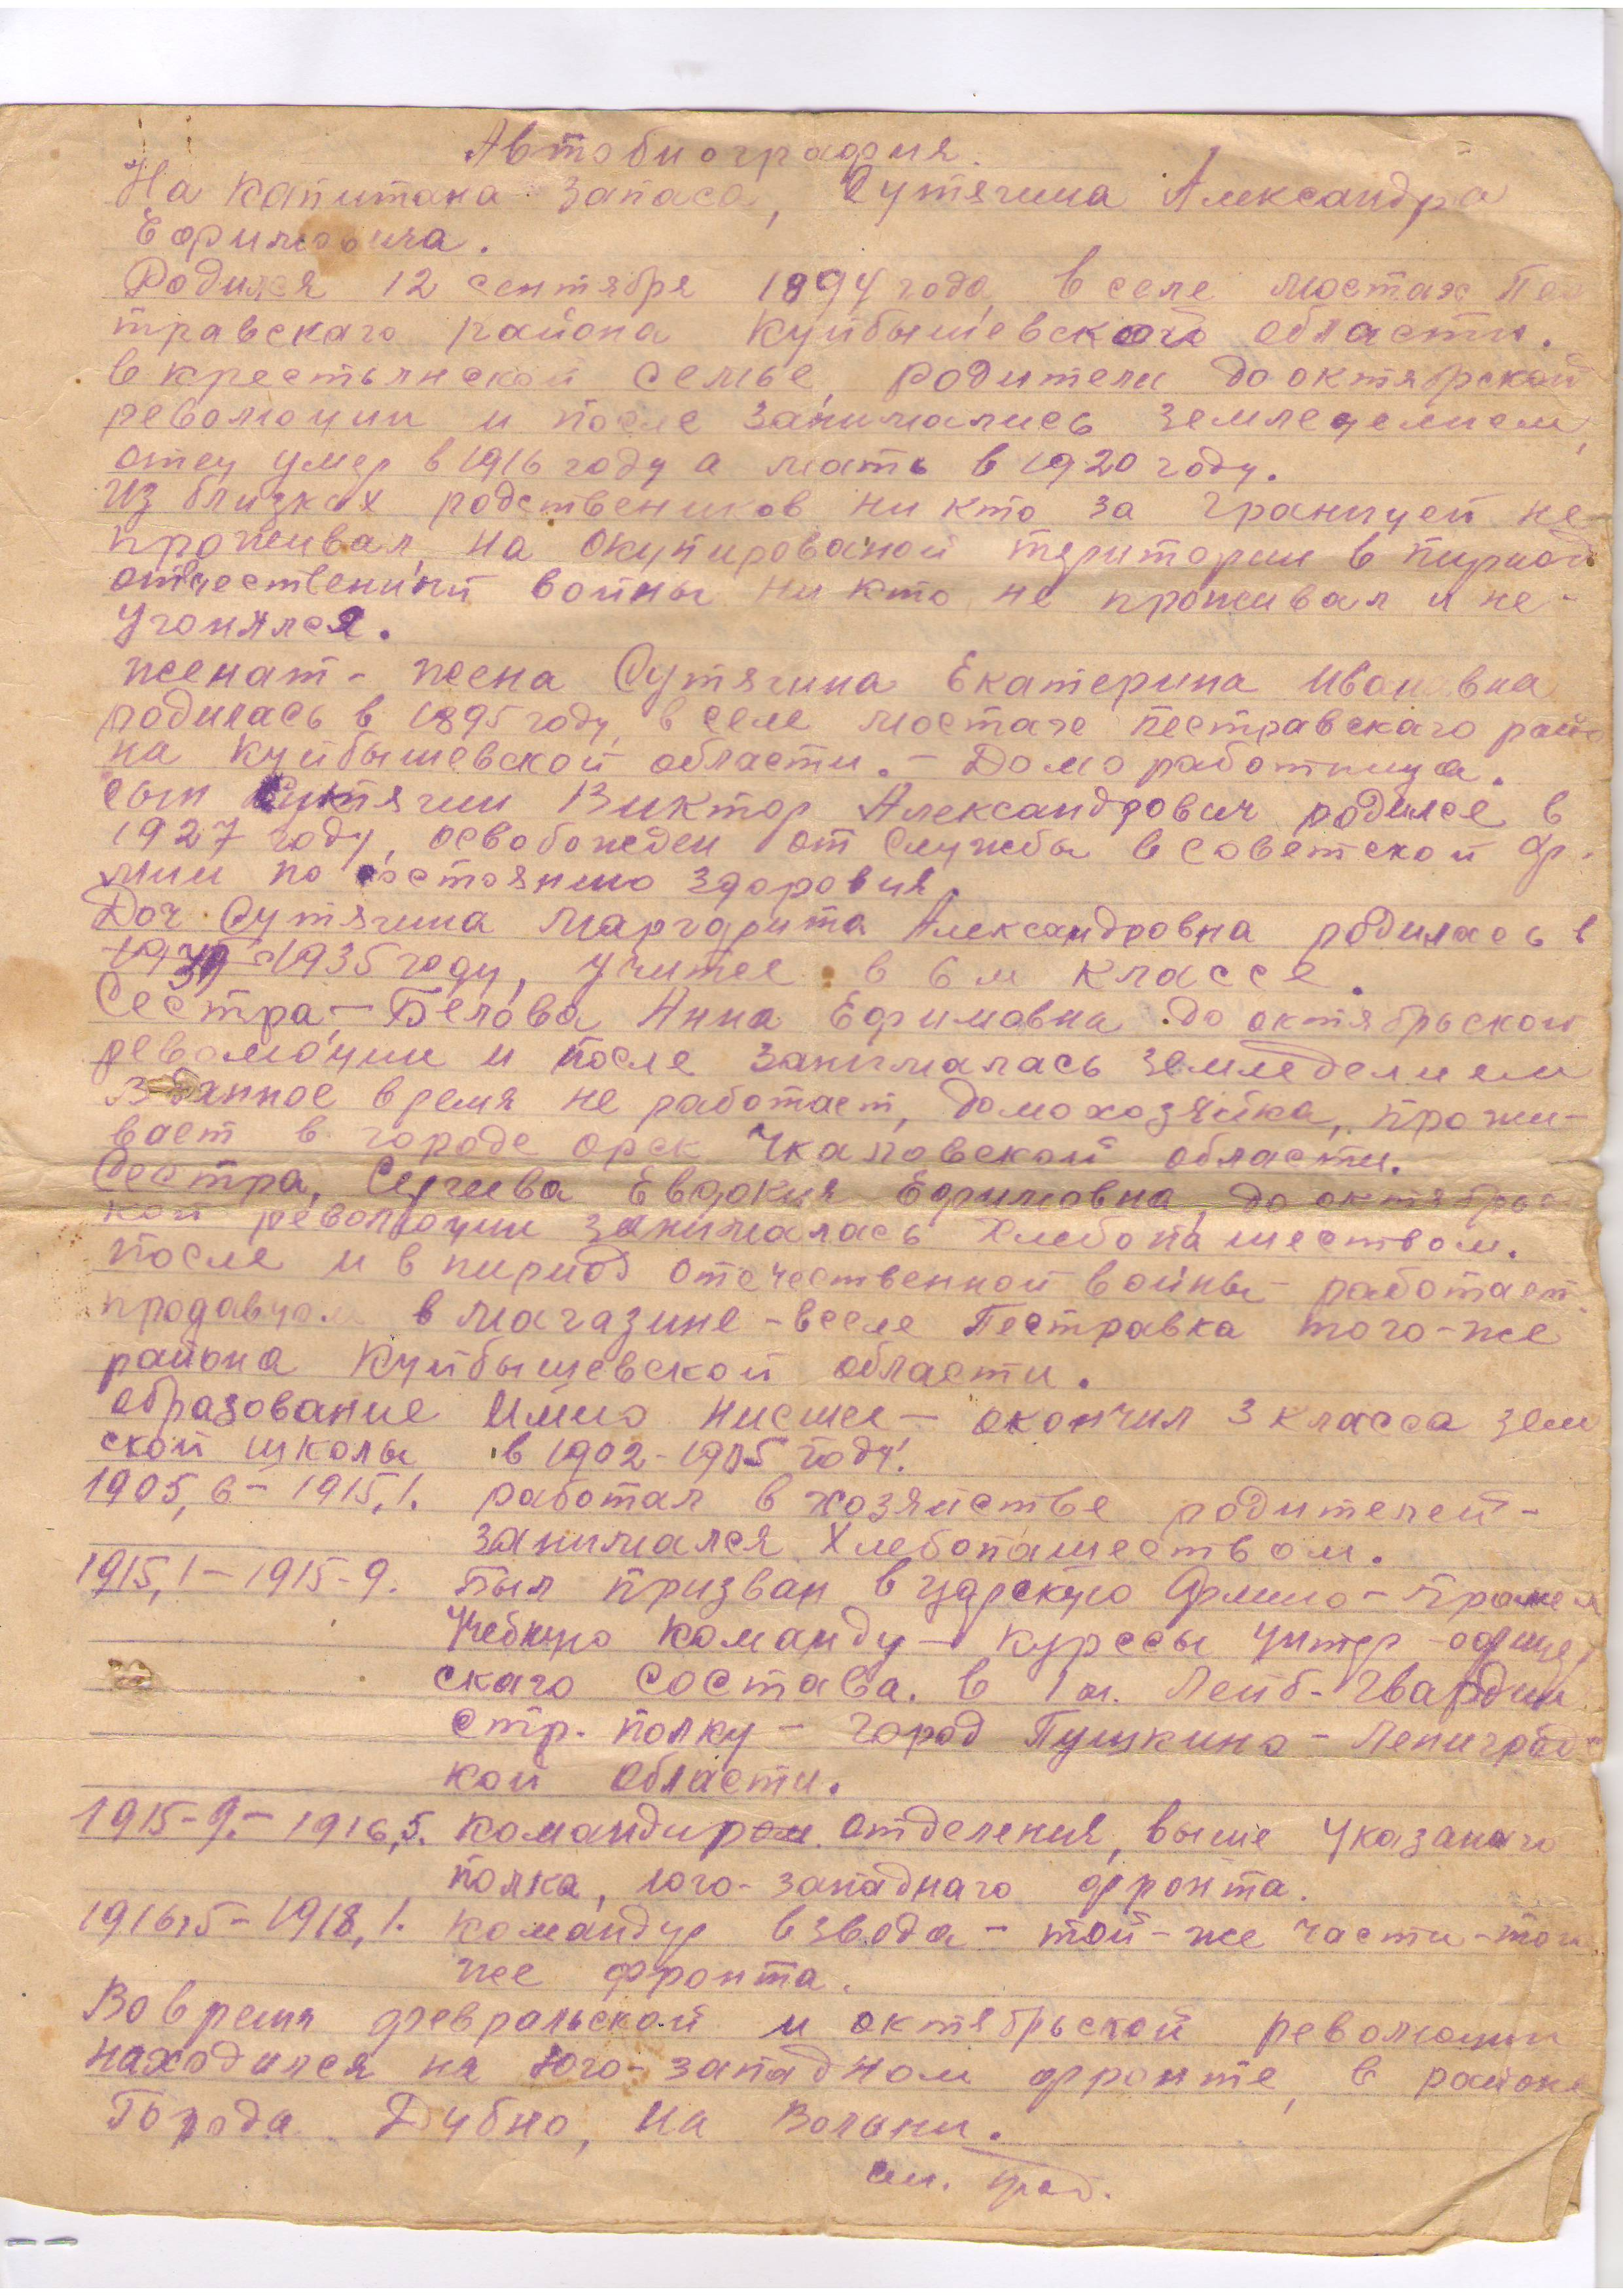 Автобиография.
На капитана запаса, Сутягина Александра
Ефимовича.
Родился 12 сентября 1894 года, в селе мостах Пес
травскаго района Куйбышевского области.
в крестьянской семье, родители до октябрской
революции и после занимались земледелием,
отец умер в 1916 году а мать в 1920 году.
Из близких родствеников ни кто за границей не
проживал, на окупированой територии в пириод
отечественной войны ни кто не проживал и не-
угонялся.
женат - жена Сутягина Екатерина Ивановна
родилась в 1895 году, в селе мостаче пестравскаго райо
на Куйбышевской области. - Домо работница.
сын Сутягин Виктор Александрович родился в
1927 году, освобожден от службы в советской Ар-
мии по состоянию здоровия.
Доч Сутягина Маргарита Александровна родилась в
1935 году, учится в 6 м классе.
Сестра - Белова Анна Ефимовна до октябрьской
революции и после занималась земледелием
В данное время не работает, домохозяйка, прожи-
вает в городе орск Чкаловской области.
Сестра, Евдокия Ефимовна, до октябрьс
кой революции занималась хлебопашеством.
после и в пириод отечественной войны - работает
продавцом в магазине - вселе Пестравка того-же
района Куйбышевской области.
образование Имею нисшее - окончил 3 класса зем
ской школы в 1902-1905 году.
1905, 6 - 1915, 1. работал в хозяйстве родителей -
занимался Хлебопашеством.
1915, 1 - 1915 - 9. Был призван в царскую Армию - прошел
Учебную команду - курссы унтер - офице,
скаго состава. в 1 м. Лейб - Гвардии
стр. полку - город Пушкино - Ленинградс
кой области.
1915 - 9. - 1916, 5. командиром отделения, выше указанаго
полка, юго-западнаго фронта.
1916, 5 - 1918, 1. командир взвода - той-же части - тог
же фронта.
Во время февральской и октябрьской революции
находился на юго-западном фронте, в районе
Города Дубно, на Волыни.